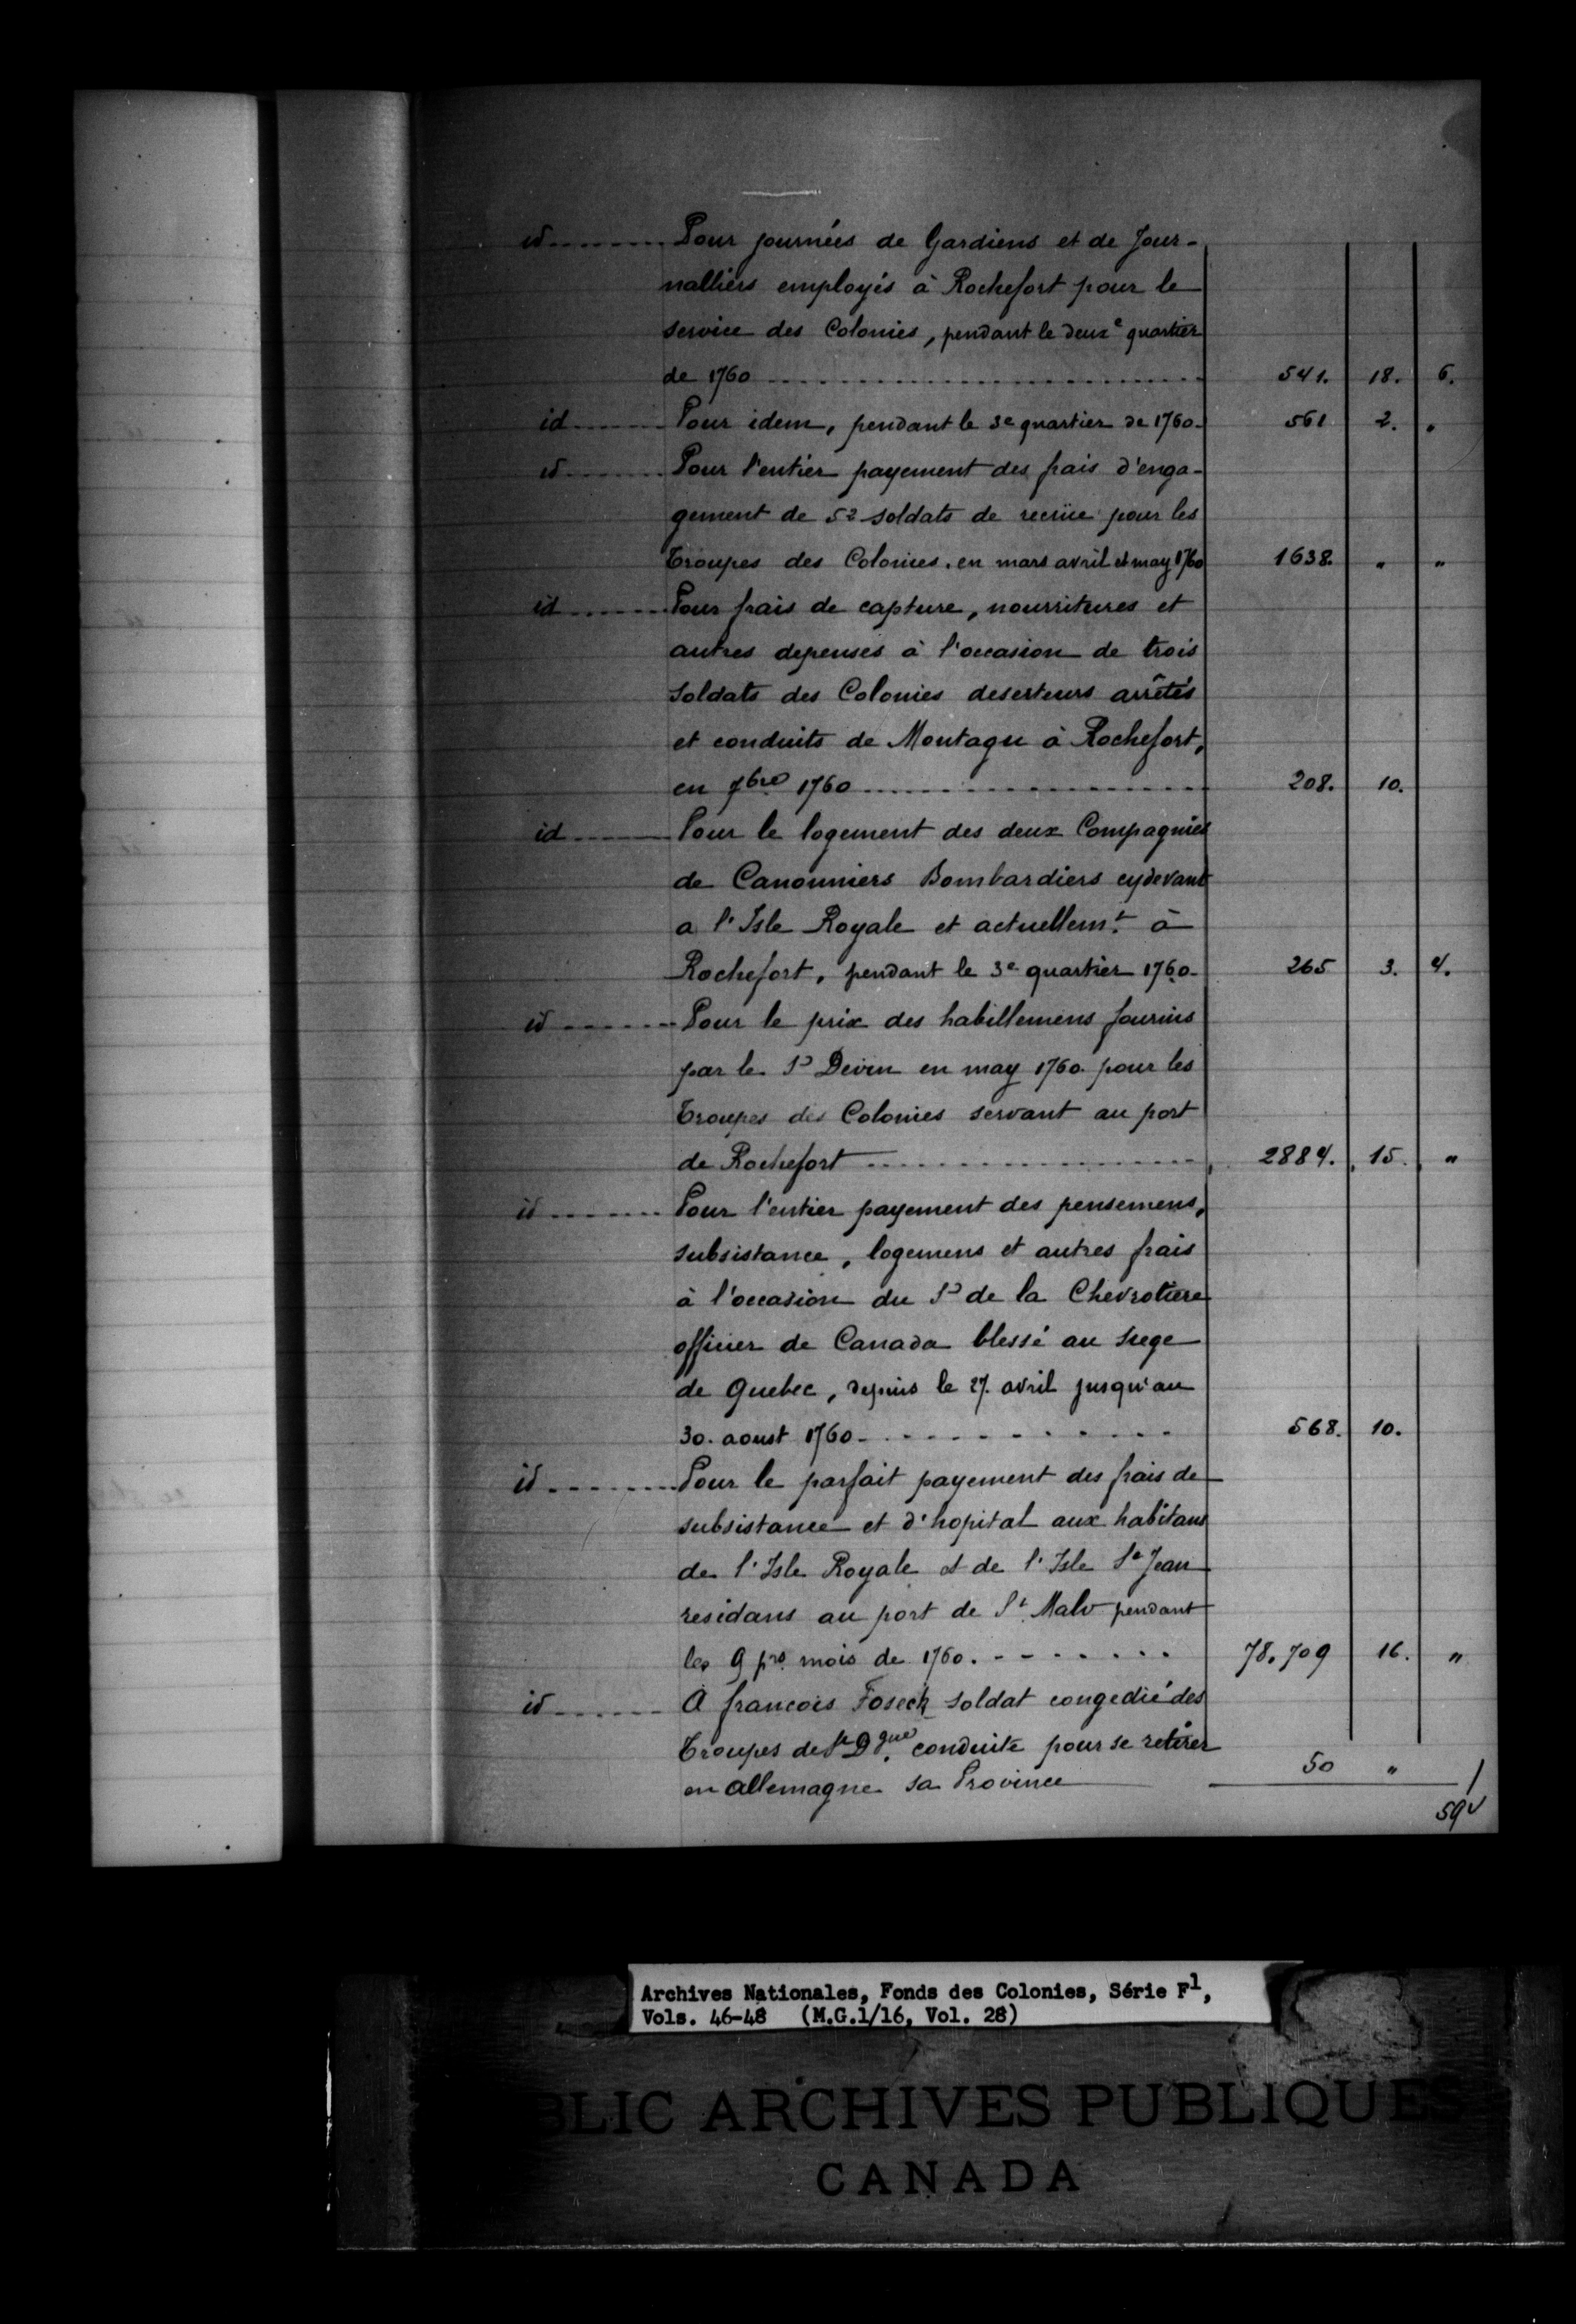 id Pour journées de Gardiens et de Jour-
nalliers employés à Rochefort pour le
service des Colonies, pendant le deux e quartier
de 1760 541. 18. 6.
id Pour idem, pendant le 3e quartier de 1760 561 2. "
id Pour l'entier payement des frais d'enga-
gement de 52 soldats de recrüe pour les
Troupes des Colonies. en mars avril et may 1760 1638. " "
id Pour frais de capture, nourritures et
autres depenses à l'occasion de trois
soldats des Colonies deserteurs arrêtés
et conduits de Montagu à Rochefort,
en 7bre 1760 208. 10.
id Pour le logement des deux Compagnies
de Canonniers Bombardiers cydevant
a l'Isle Royale et actuellemt. à
Rochefort, pendant le 3e quartier 1760 265 3. 4.
id Pour le prix des habillemens fournis
par le Sr Devin en may 1760 pour les
Troupes des Colonies servant au port
de Rochefort 2884. 15. "
id Pour l'entier payement des pensemens,
subsistance, logemens et autres frais
à l'occasion du Sr de la Chevrotiere
officier de Canada blessé au siege
de Quebec, depuis le 27. avril jusqu'au
30. aoust 1760 568. 10.
id Pour le parfait payement des frais de
subsistance et d'hopital aux habitans
de l'Isle Royale et de l'Isle St Jean
residans au port de St. Malo pendant
les 9 prs mois de 1760. 78,709 16. "
id A francois Foseck soldat congedié des
Troupes de St Dgue. conduite pour se retirer
en allemagne sa Province 50 "
59v
Archives Nationales, Fonds des Colonies, Série F1,
Vols. 46-48 (M.G.1/16, Vol. 28)
BLIC ARCHIVES PUBLIQUES
CANADA